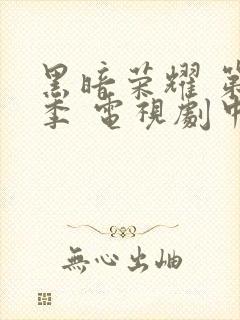 黑暗荣耀 第
季 電視劇
無心出岫